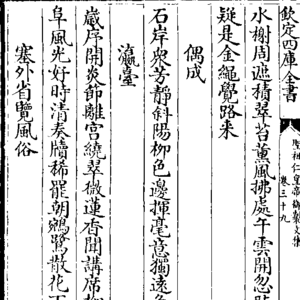 欽定四庫全書
聖祖仁皇帝御製文集
卷三十九
水榭周遮積翠苔薰風拂處午雲開忽
疑是金繩覺路来
偶成
石岸衆芳靜斜陽柳色邊揮毫意獨遠
瀛臺
嵗序開炎節離宫繞翠微蓮香聞講席
阜風光好時清奏牘稀罷朝鵷鷺散花
塞外省覽風俗